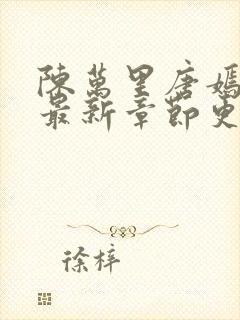 陳萬里唐嫣
最新章節更
徐梓